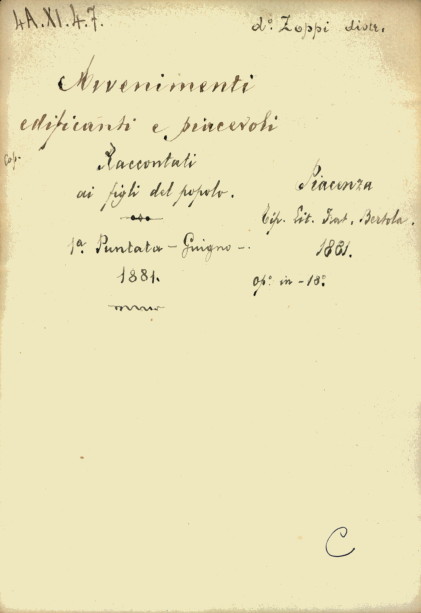 4A.XI.4.7.
d.º Zoppi distr.
Avvenimenti
edificanti e piacevoli
Cop.
Raccontati
ai figli del popolo.
1ª. Puntata – Guigno –.
1881.
Piacenza
Tip. Lit. Frat. Bertola.
1881.
op.º in – 18.º
C